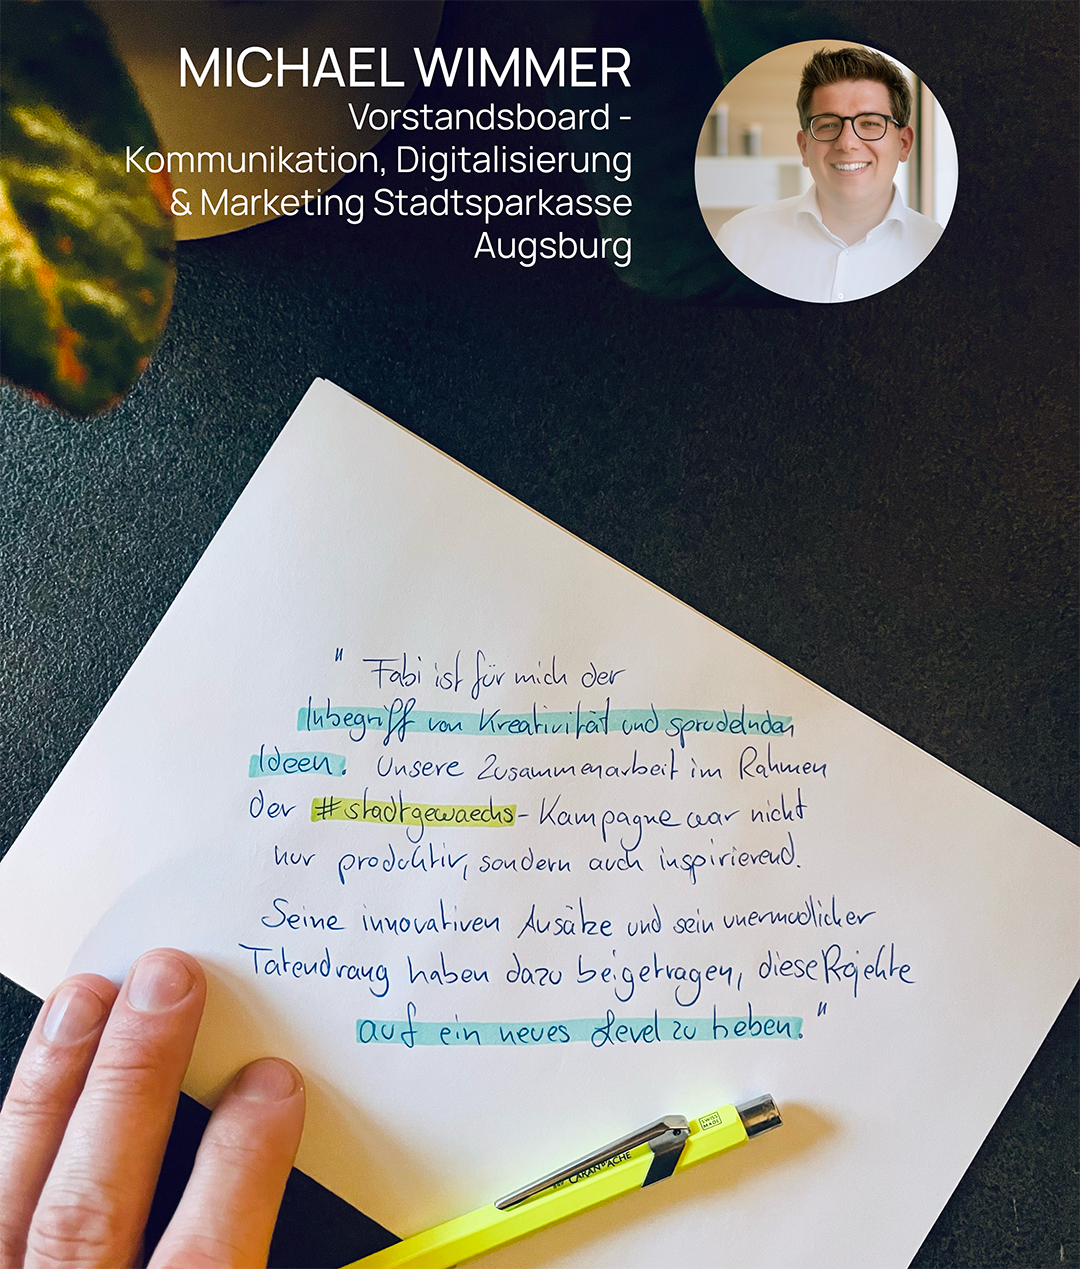 MICHAEL WIMMER
Vorstandsboard -
Kommunikation, Digitalisierung
& Marketing Stadtsparkasse
Augsburg
" Fabi ist für mich der
Inbegriff von Kreativität und sprudelnden
Ideen. Unsere Zusammenarbeit im Rahmen
der #stadtgewaechs-Kampagne war nicht
nur produktiv, sondern auch inspirierend.
Seine innovativen Ansätze und sein unermüdlicher
Tatendrang haben dazu beigetragen, diese Projekte
auf ein neues Level zu heben."
CARAN D'ACHE
SWISS
MADE